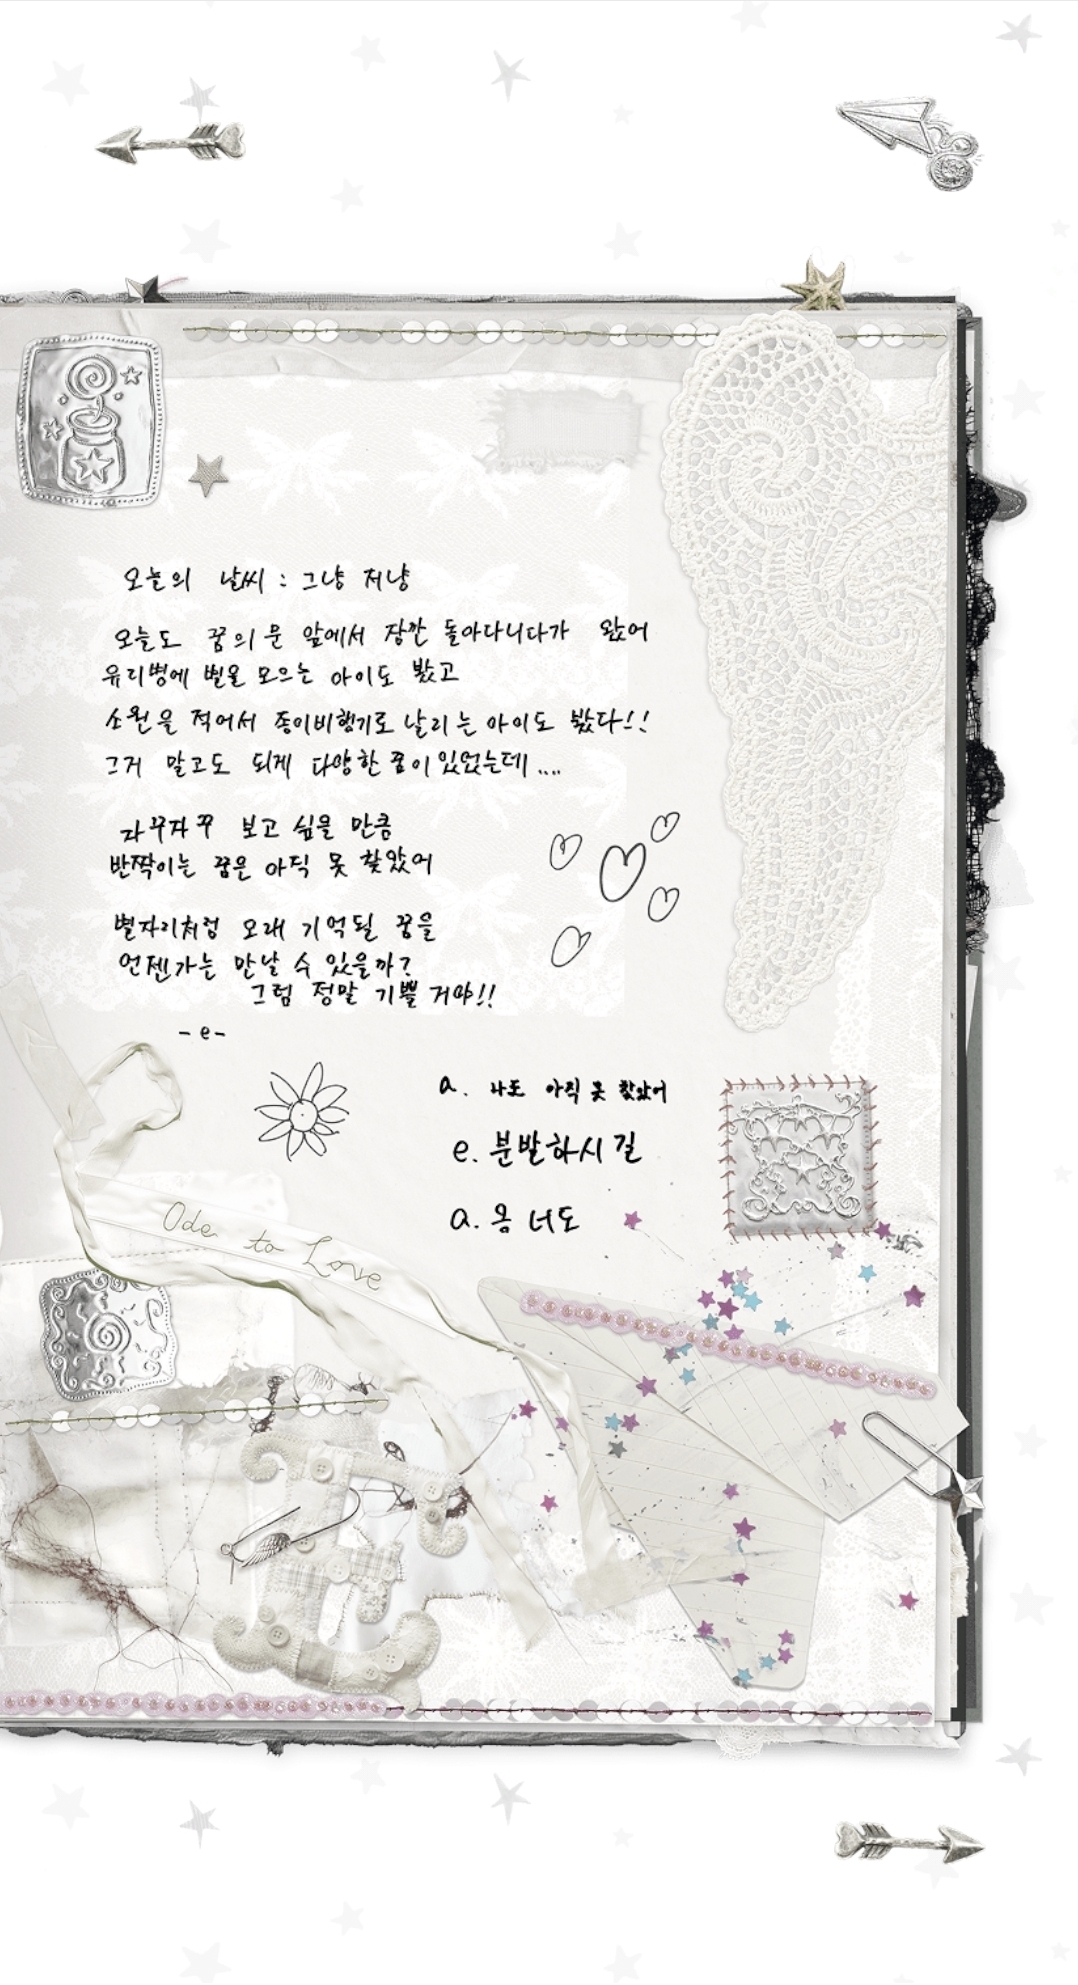 오늘의 날씨 : 그냥 저냥
오늘도 꿈의 문 앞에서 잠깐 돌아다니다가 왔어
유리병에 별을 모으는 아이도 봤고
소원을 적어서 종이비행기로 날리는 아이도 봤다!!
그거 말고도 되게 다양한 꿈이 있었는데....
자꾸자꾸 보고 싶을 만큼
반짝이는 꿈은 아직 못 찾았어
별자리처럼 오래 기억될 꿈을
언젠가는 만날 수 있을까?
그럼 정말 기쁠 거야!!
-e-
a. 나도 아직 못 찾았어
e. 분발하시길
a. 옹 너도
Ode to Love